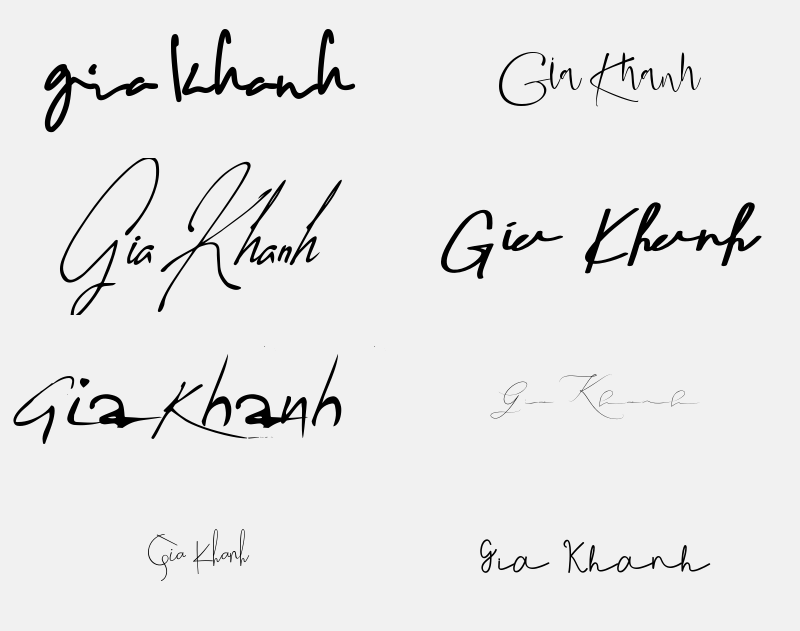 gia khanh
Gia Khanh
Gia Khanh
Gia Khanh
Gia Khanh
Gia Khanh
Gia Khanh
Gia Khanh